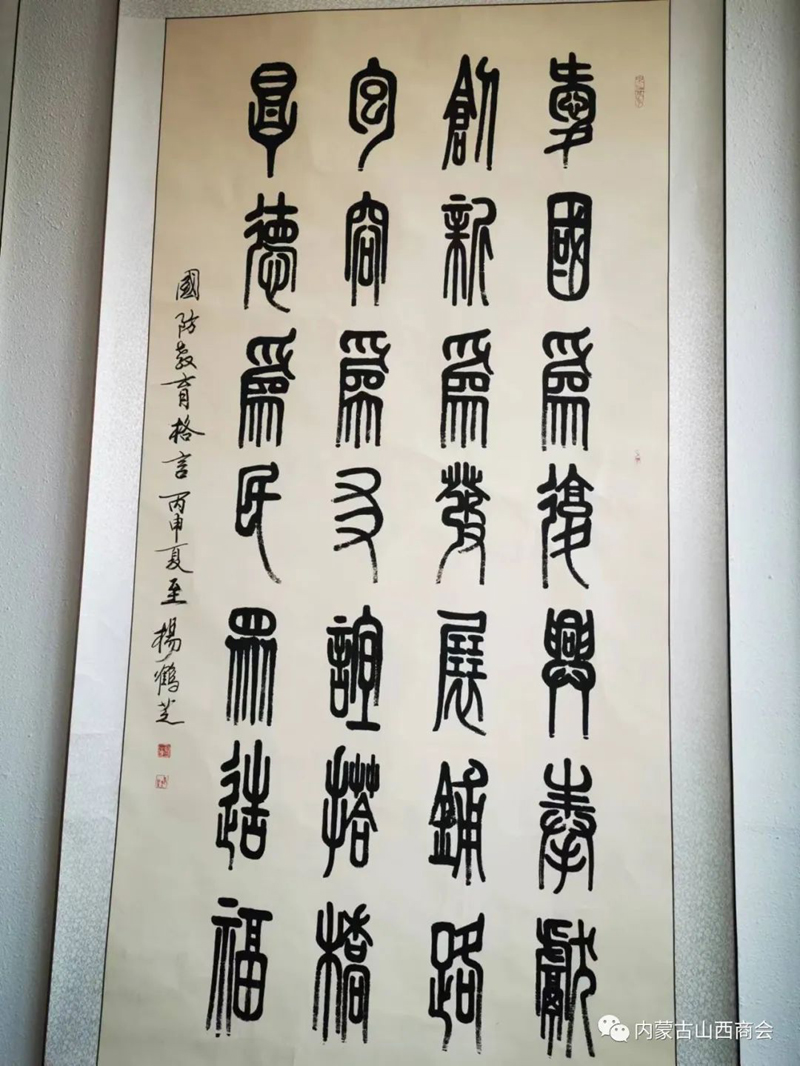 愛國爲復興奉獻
創新爲發展鋪路
包容爲友誼搭橋
厚德爲民眾造福
國防教育格言丙申夏至楊鶴芝
内蒙古山西商会